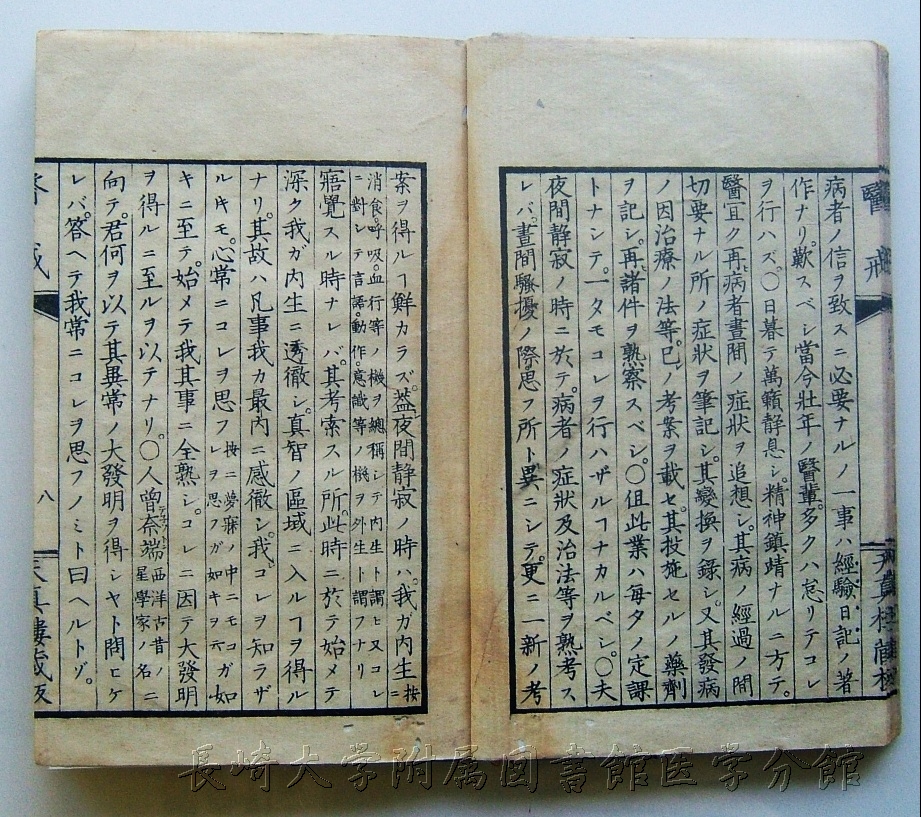 醫戒
病者ノ信ヲ致スニ必要ナルノ一事ハ經驗日記ノ著
作ナリ。歎スベシ當今壯年ノ醫輩。多クハ怠リテコレ
ヲ行ハズ。〇日暮テ萬籟静息シ。精神鎮靖ナルニ方テ。
醫宜ク再病者晝間ノ症狀ヲ追想シ。其病ノ經過ノ間
切要ナル所ノ症狀ヲ筆記シ。其變換ヲ錄シ。又其發病
ノ因治療ノ法等。已ノ考案ヲ載セ。其投施セルノ藥劑
ヲ記シ。再諸件ヲ熟察スベシ。〇但此業ハ毎夕ノ定課
トナシテ。一タモコレヲ行ハザルヿナカルベシ。〇夫
夜間静寂ノ時ニ於テ。病者ノ症狀及治法等ヲ熟考ス
レバ。晝間騷擾ノ際。思フ所ト異ニシテ。更ニ一新ノ考
案ヲ得ルヿ鮮カラズ。蓋夜間静寂ノ時ハ。我ガ内生按ニ
消食。呼吸。血行等ノ機ヲ總稱シテ内生ト謂ヒ又コレ
ニ對シテ言語。動作。意識等ノ機ヲ外生ト謂フナリ
寤覺スル時ナレバ。其考索スル所。此時ニ於テ始メテ
深ク我ガ内生ニ透徹シ。真智ノ區域ニ入ルヿヲ得ル
ナリ。其故ハ凡事我カ最内ニ感徹シ。我コレヲ知ラザ
ルキモ。心常ニコレヲ思フ按ニ夢寐ノ中ニモコガ如レヲ思フガ如キヲ云
キニ至テ。始メテ我其事ニ全熟シ。コレニ因テ大發明
ヲ得ルニ至ルヲ以テナリ。〇人曾奈端西洋古昔ノ星學家ノ名ニ
向テ。君何ヲ以テ其異常ノ大發明ヲ得シヤト問ヒケ
レバ。答ヘテ我常ニコレヲ思フノミト曰ヘルトゾ。
八
長崎大学附属図書館医学分館